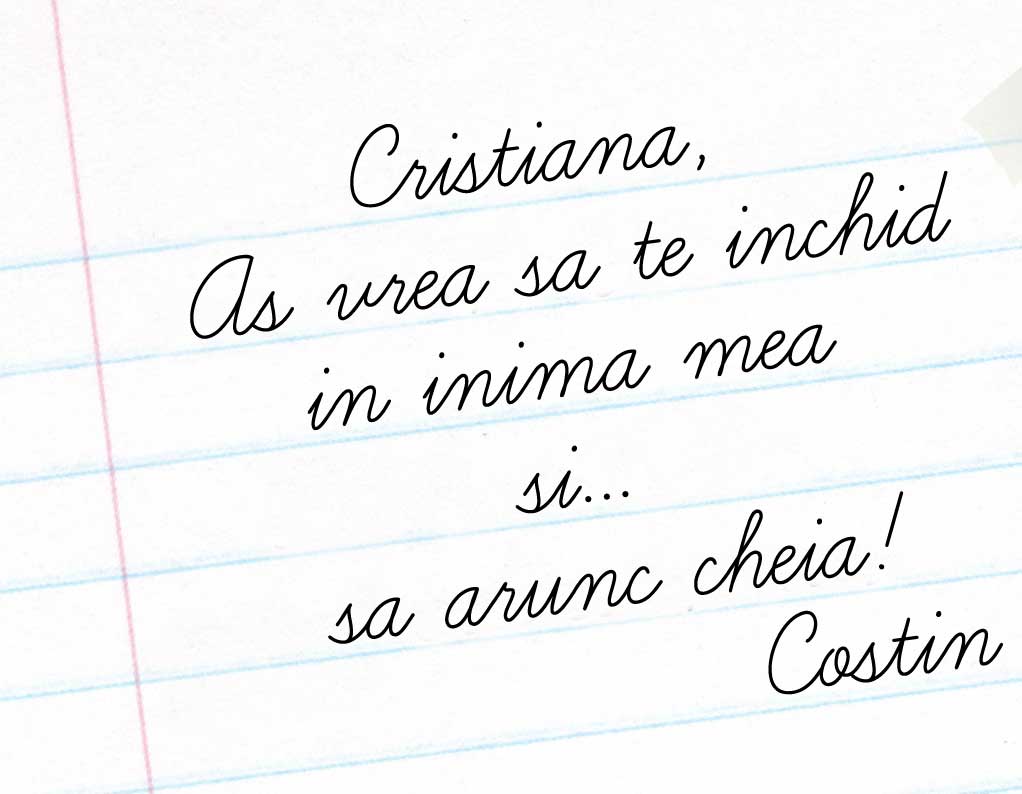 Cristiana,
As vrea sa te inchid
in inima mea
si...
sa arunc cheia!
Costin